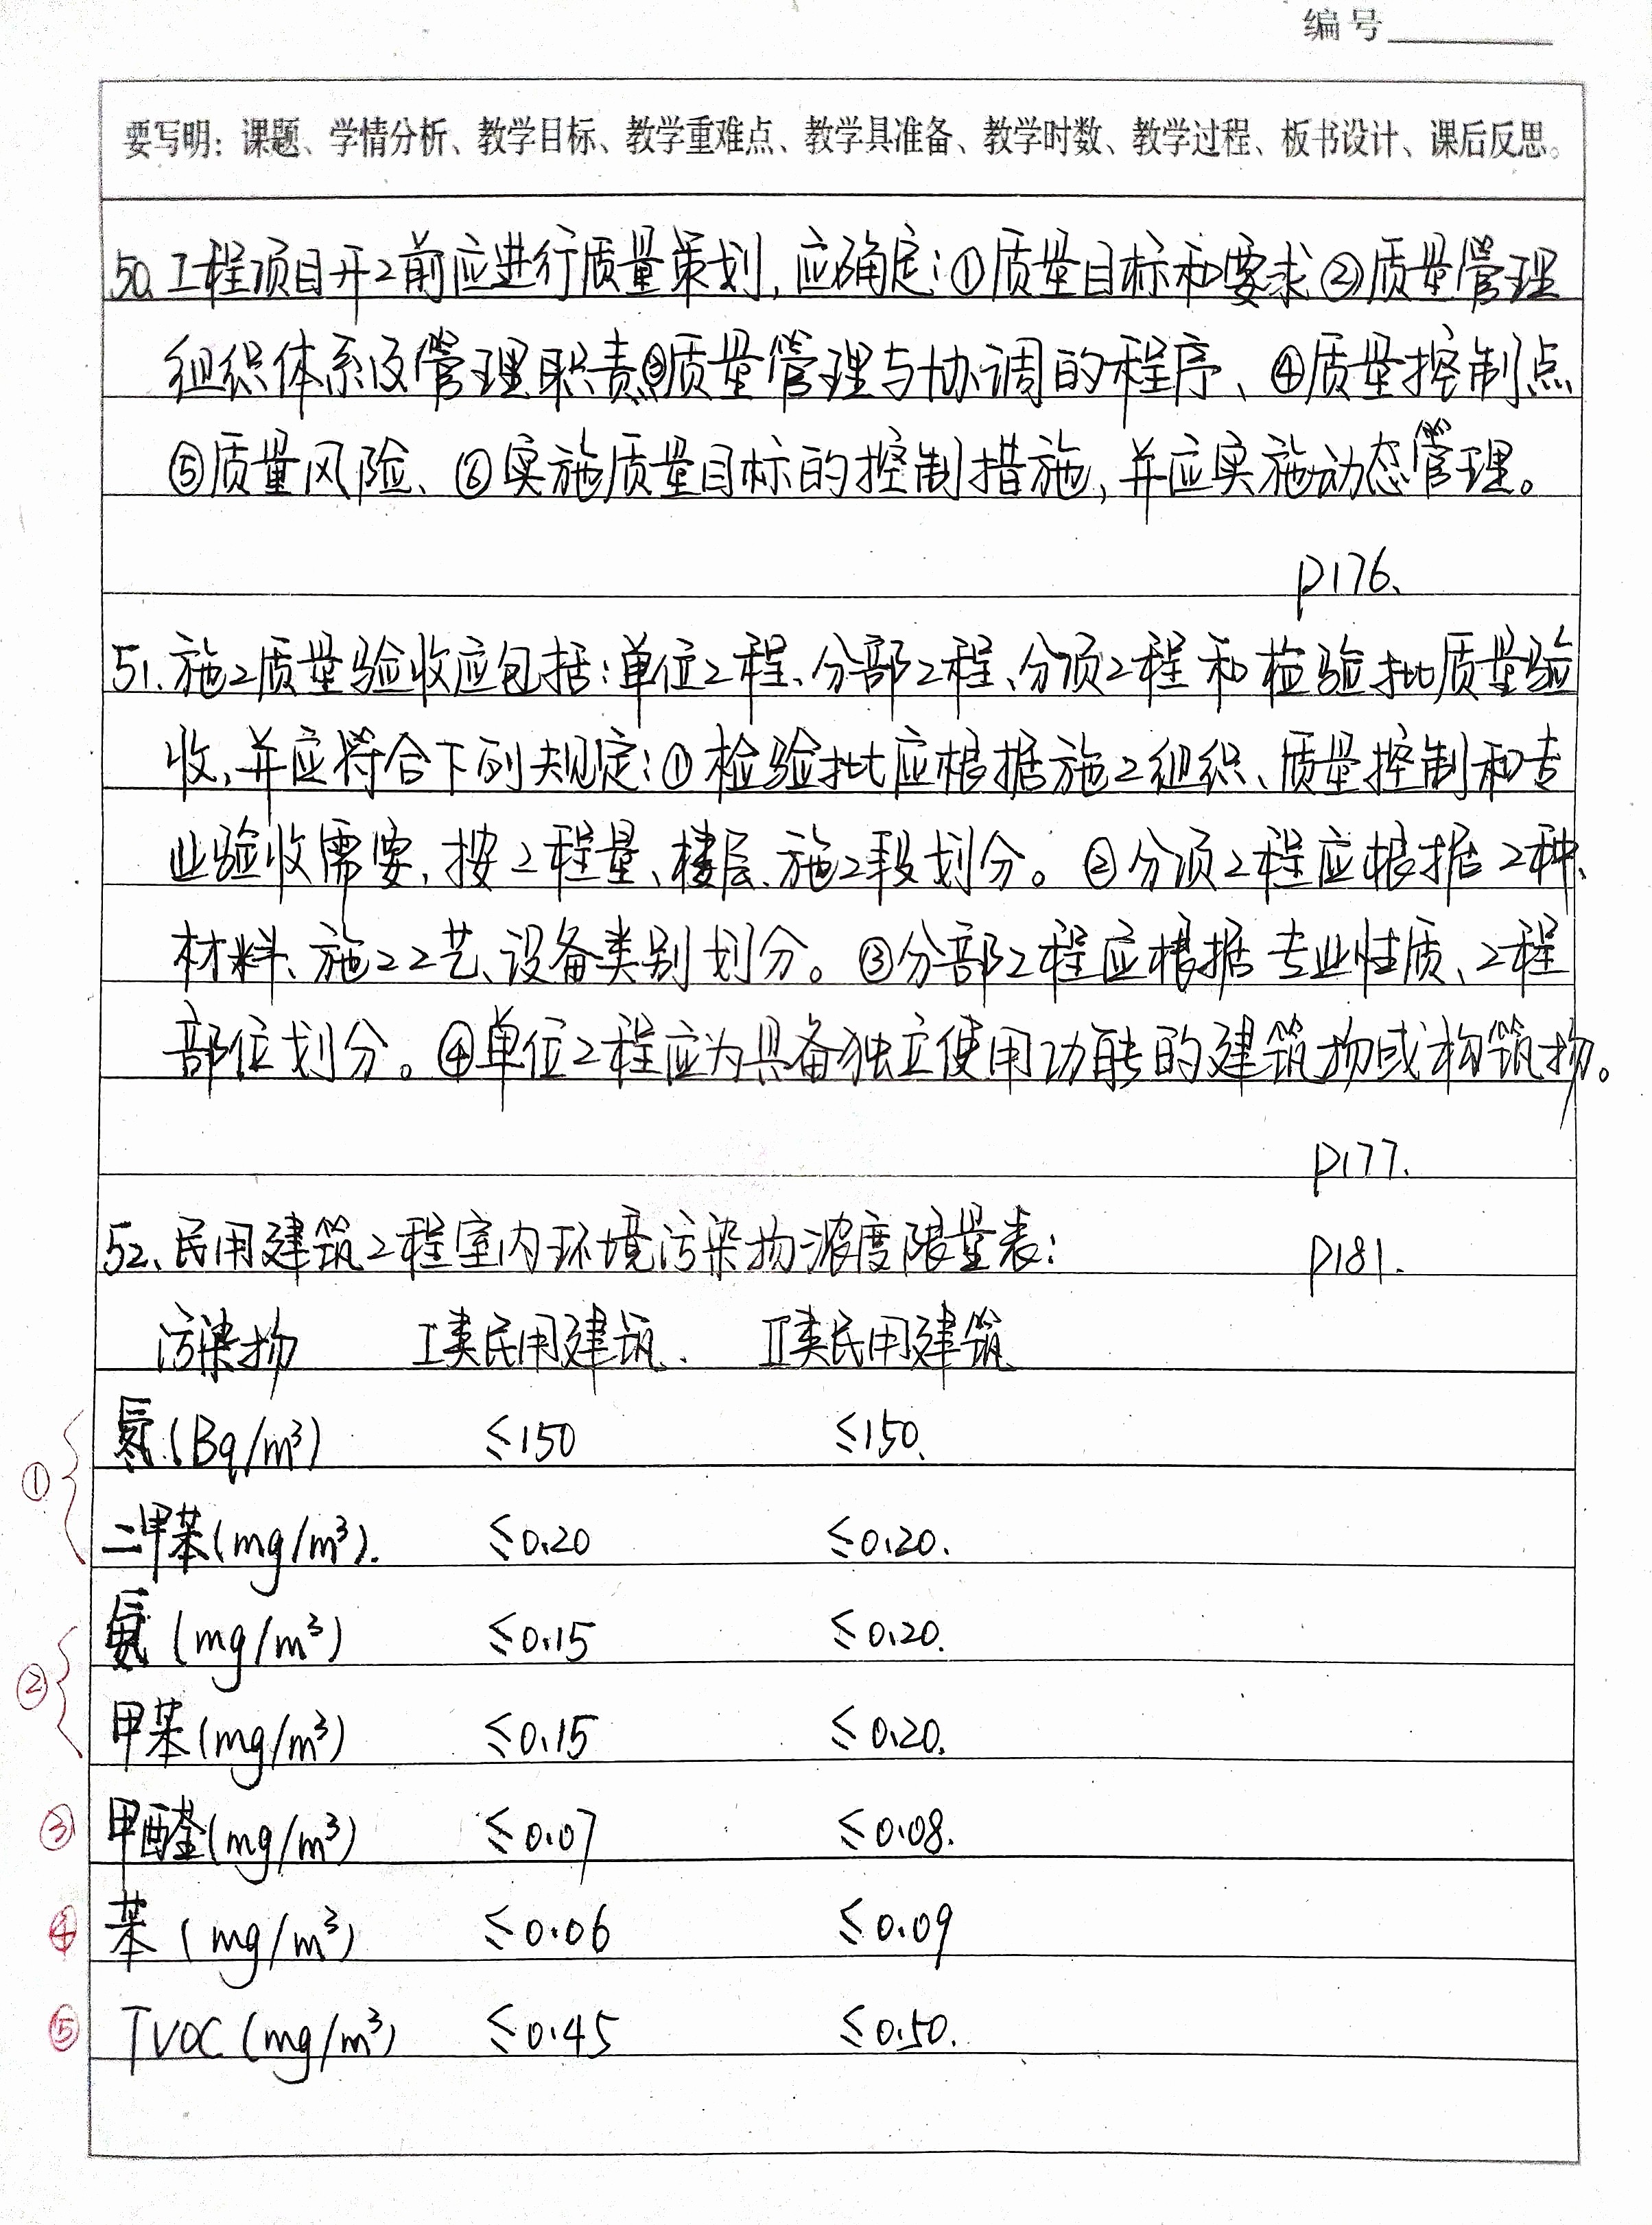 编号
要写明：课题、学情分析、教学目标、教学重难点、教学具准备、教学时数、教学过程、板书设计、课后反思。
50.工程项目开工前应进行质量策划，应确定：①质量目标和要求②质量管理
组织体系及管理职责③质量管理与协调的程序、④质量控制点
⑤质量风险、⑥实施质量目标的控制措施，并应实施动态管理。
P176.
51.施工质量验收应包括：单位工程、分部工程、分项工程和检验批质量验
收，并应符合下列规定：①检验批应根据施工组织、质量控制和专
业验收需要，按工程量、楼层、施工段划分。②分项工程应根据工种、
材料、施工工艺、设备类别划分。③分部工程应根据专业性质、工程
部位划分。④单位工程应为具备独立使用功能的建筑物或构筑物。
P177.
52.民用建筑工程室内环境污染物浓度限量表： P181.
污染物 Ⅰ类民用建筑. Ⅱ类民用建筑
① 氡(Bq/m³) ≤150 ≤150.
二甲苯(mg/m³). ≤0.20 ≤0.20.
② 氨(mg/m³) ≤0.15 ≤0.20.
甲苯(mg/m³) ≤0.15 ≤0.20.
③ 甲醛(mg/m³) ≤0.07 ≤0.08.
④ 苯(mg/m³) ≤0.06 ≤0.09
⑤ TVOC(mg/m³) ≤0.45 ≤0.50.